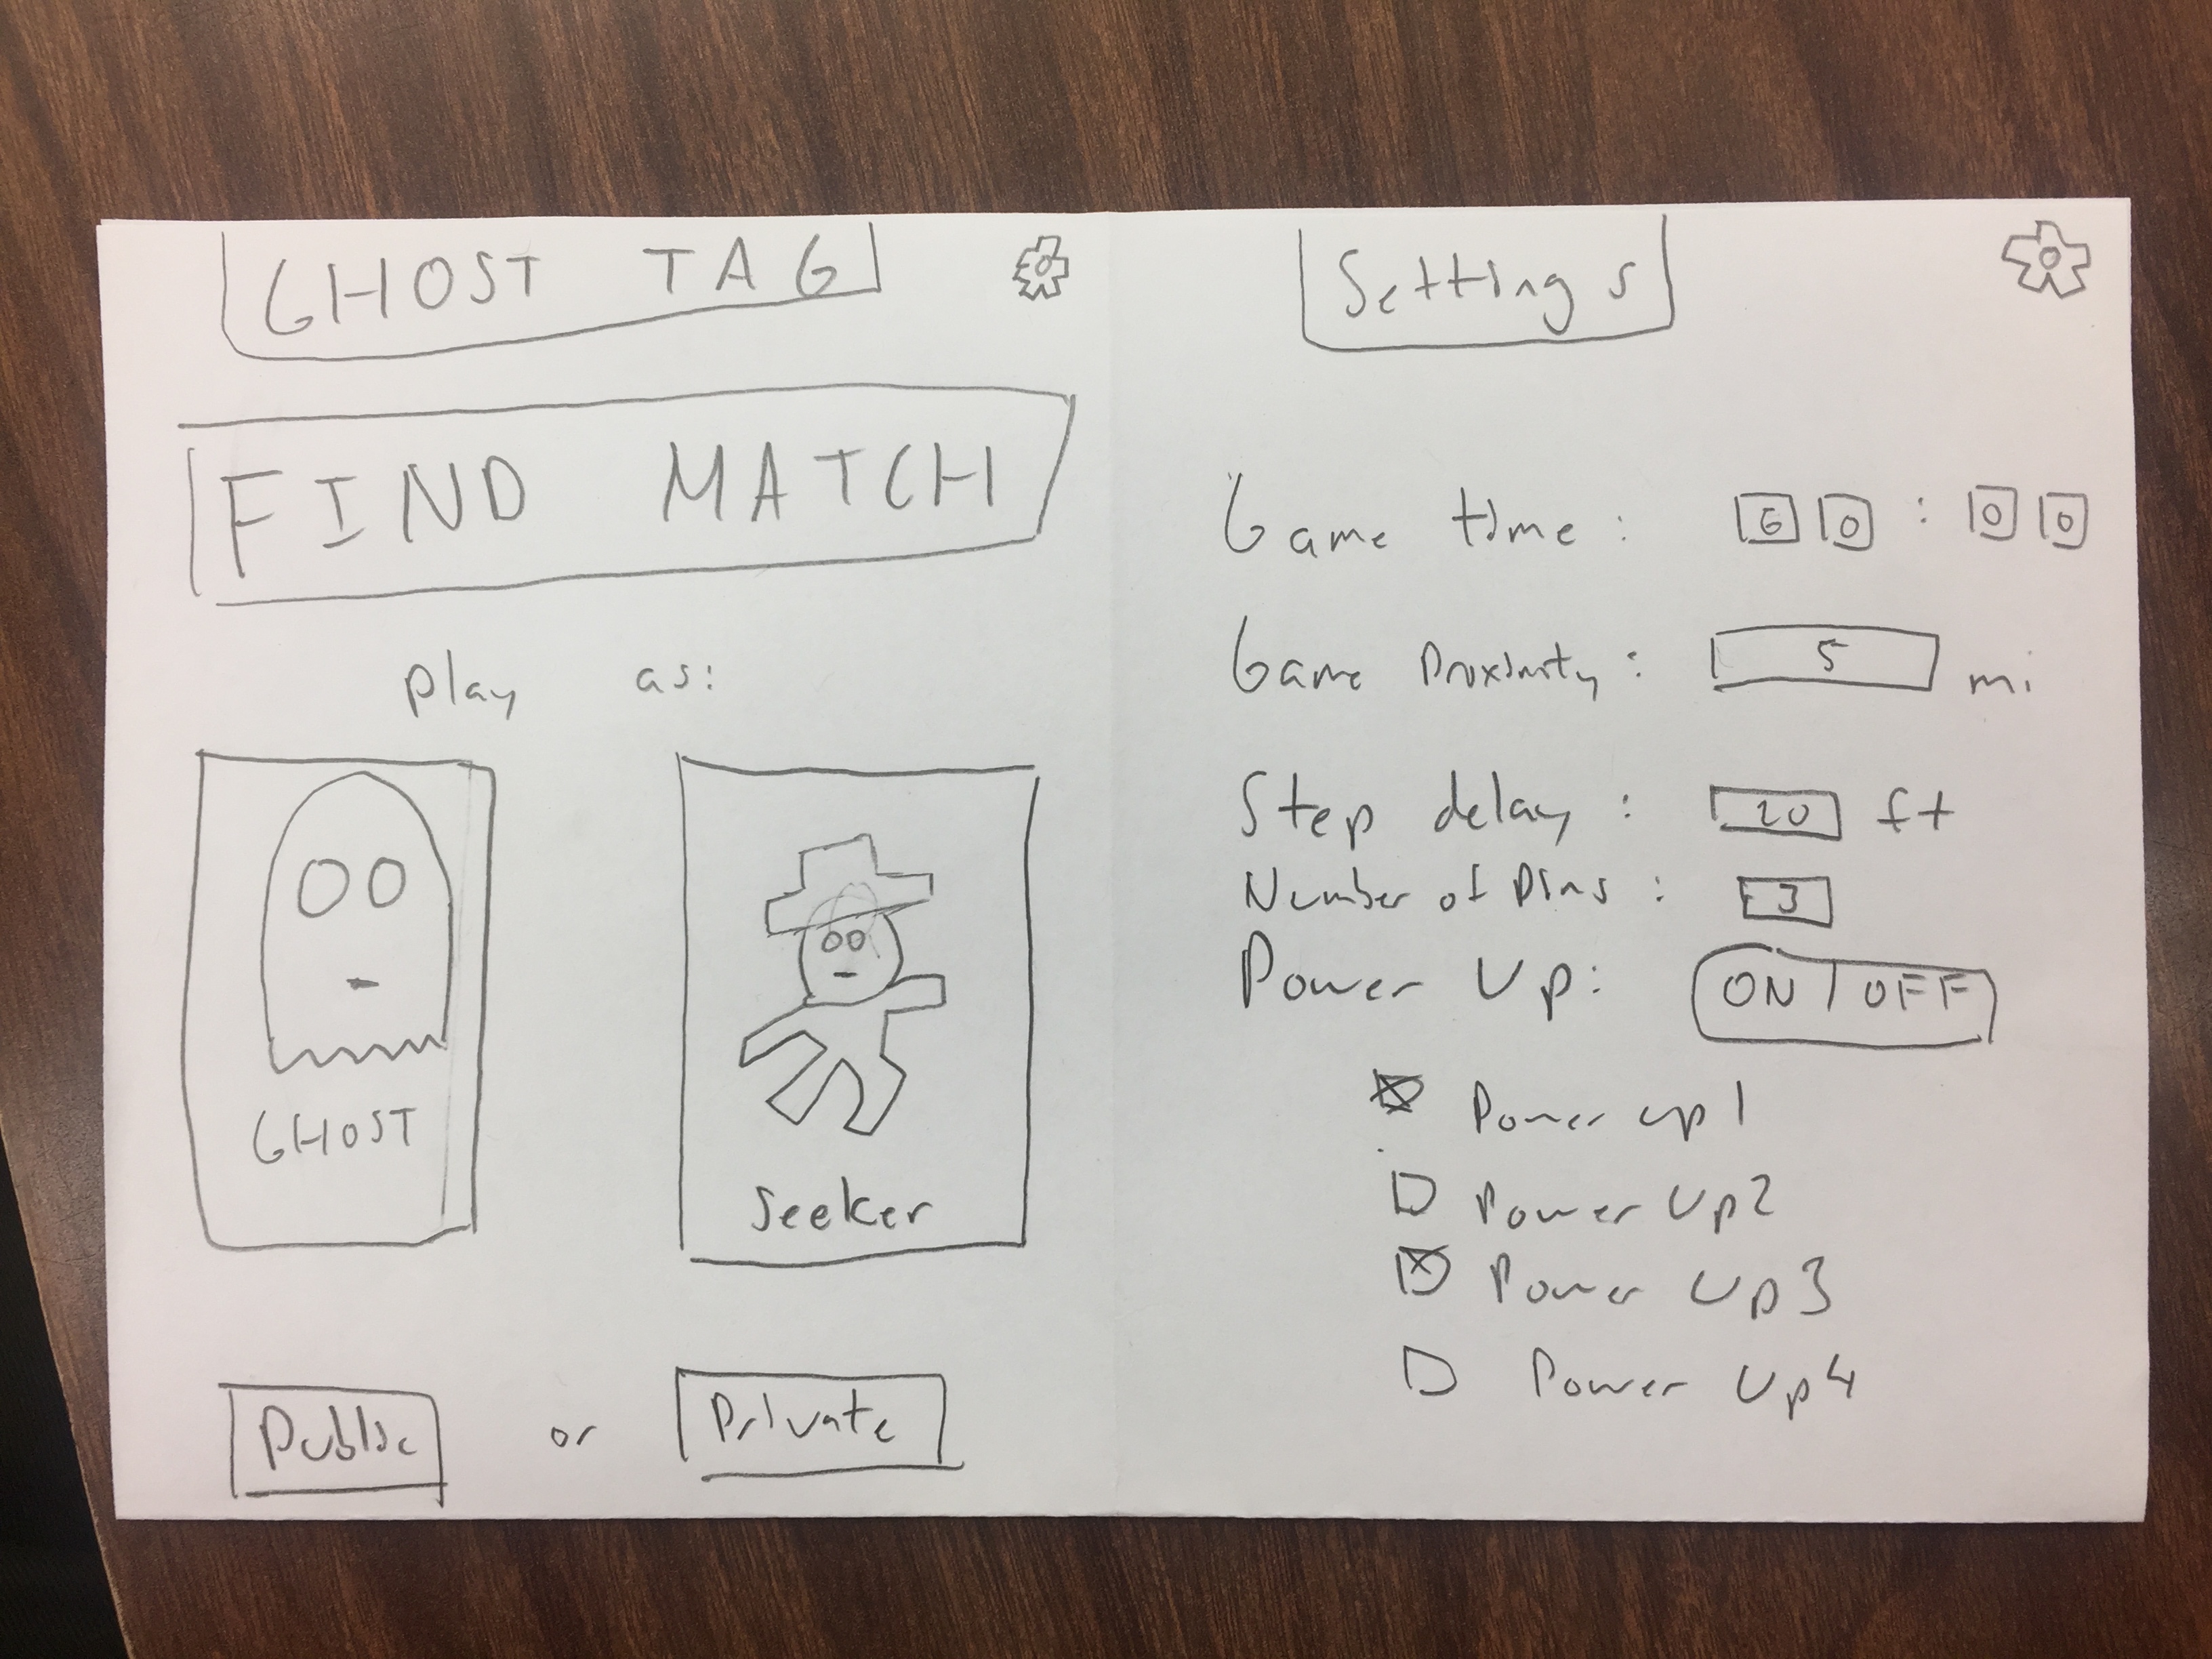 GHOST TAG
FIND MATCH
play as:
GHOST
Seeker
Public or Private
Settings
Game time: 60:00
Game Proximity: 5 mi
Step delay: 20 ft
Number of Pins: 3
Power Up: ON/OFF
Power up 1
Power Up 2
Power Up 3
Power Up 4